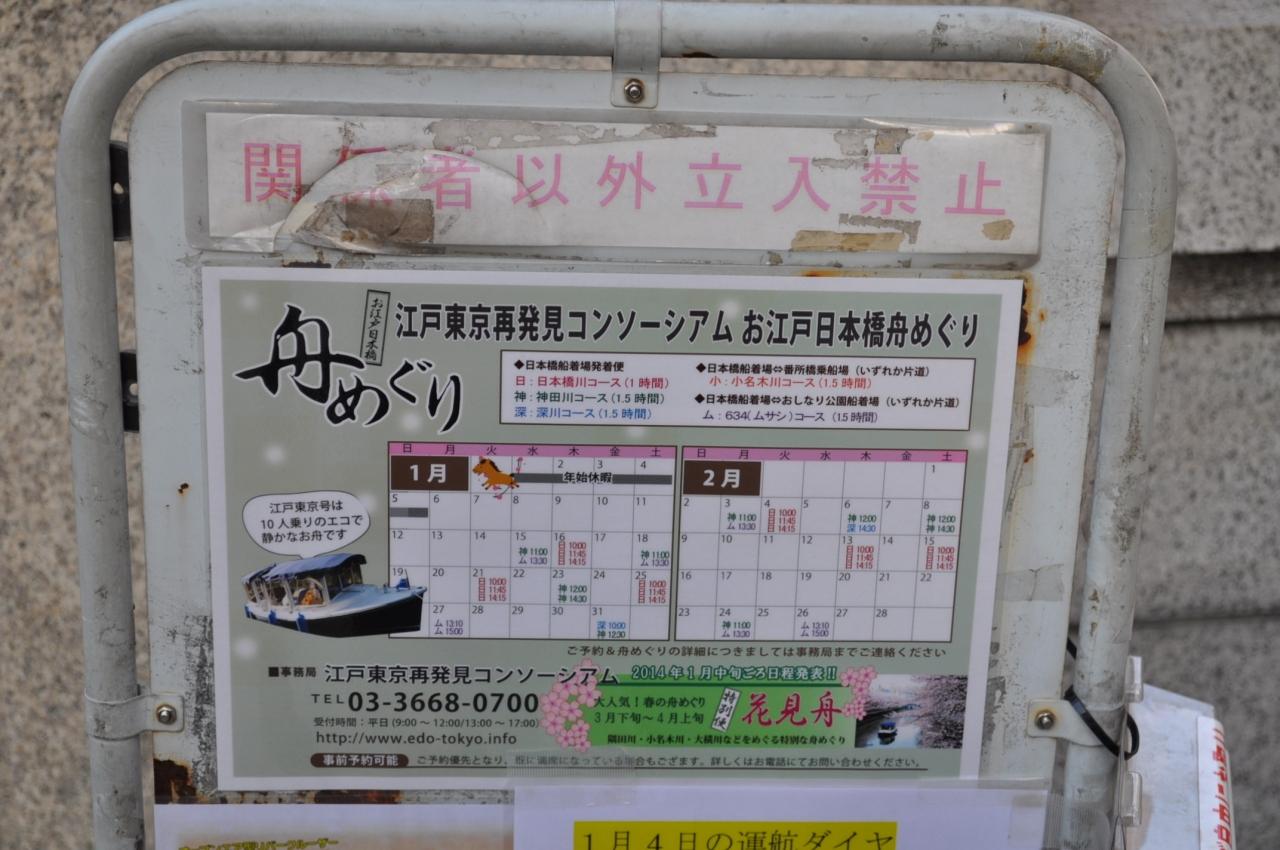 関係者以外立入禁止
お江戸日本橋
舟めぐり
江戸東京再発見コンソーシアム お江戸日本橋舟めぐり
◆日本橋船着場発着便
日:日本橋川コース(1時間)
神:神田川コース(1.5時間)
深:深川コース(1.5時間)
◆日本橋船着場⇔番所橋乗船場(いずれか片道)
小:小名木川コース(1.5時間)
◆日本橋船着場⇔おしなり公園船着場(いずれか片道)
ム:634(ムサシ)コース(1.5時間)
日 月 火 水 木 金 土
1月 2 3 4
年始休暇
5 6 7 8 9 10 11
12 13 14 15 16 17 18
神 11:00 日 10:00 神 11:00
ム 13:30 日 11:45 ム 13:30
日 14:15
19 20 21 22 23 24 25
日 10:00 神 12:00 日 10:00
日 11:45 神 14:30 日 11:45
日 14:15 日 14:15
27 28 29 30 31
ム 13:10 深 10:00
ム 15:00 神 12:30
日 月 火 水 木 金 土
2月 1
2 3 4 5 6 7 8
神 11:00 日 10:00 神 12:00 神 12:00
ム 13:30 日 11:45 深 14:30 神 14:30
日 14:15
9 10 11 12 13 14 15
日 10:00 日 10:00
日 11:45 日 11:45
日 14:15 日 14:15
16 17 18 19 20 21 22
23 24 25 26 27 28
神 11:00 ム 13:10
ム 13:30 ム 15:00
江戸東京号は
10人乗りのエコで
静かなお舟です
ご予約&舟めぐりの詳細につきましては事務局までご連絡ください
■事務局 江戸東京再発見コンソーシアム
TEL 03-3668-0700
受付時間:平日(9:00〜12:00/13:00〜17:00)
http://www.edo-tokyo.info
2014年1月中旬ごろ日程発表!!
大人気!春の舟めぐり
3月下旬〜4月上旬
特別便
花見舟
隅田川・小名木川・大横川などをめぐる特別な舟めぐり
事前予約可能 ご予約優先となり、既に満席になっている場合もござます。詳しくはお電話にてお問い合わせください。
1月4日の運航ダイヤ